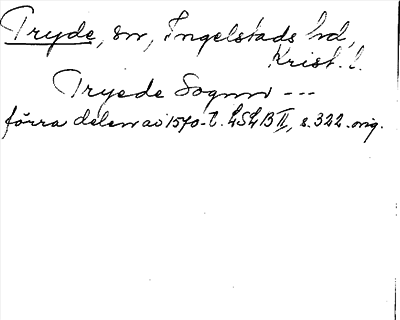 Tryde, sn, Ingelstads hd,
Krist. l.
Tryede Sognn ---
förra delen av 1570-t. LSLB II, s. 322. orig.